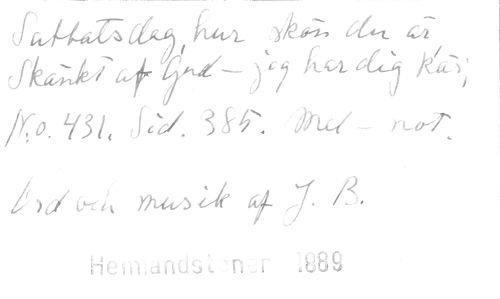 Sabbatsdag, hur skön du är,
Skänkt af Gud – jag har dig kär;
N.o. 431. Sid. 385. Mel – not.
Ord och musik af J. B.
Hemlandstoner 1889